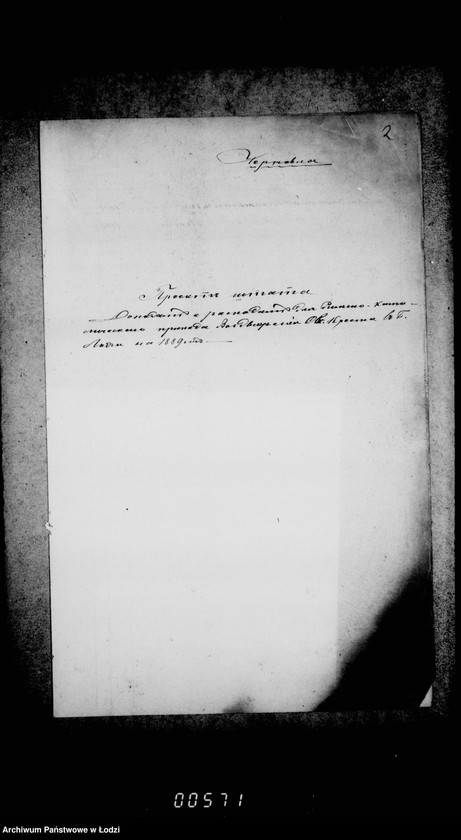 2
Черновка
Проектъ штата
Доходамъ и расходамъ для Римско-като-
лическаго прихода Воздвиженiя Св. Креста въ Г.
Лодзи на 1889 годъ.
00571
Archiwum Państwowe w Łodzi